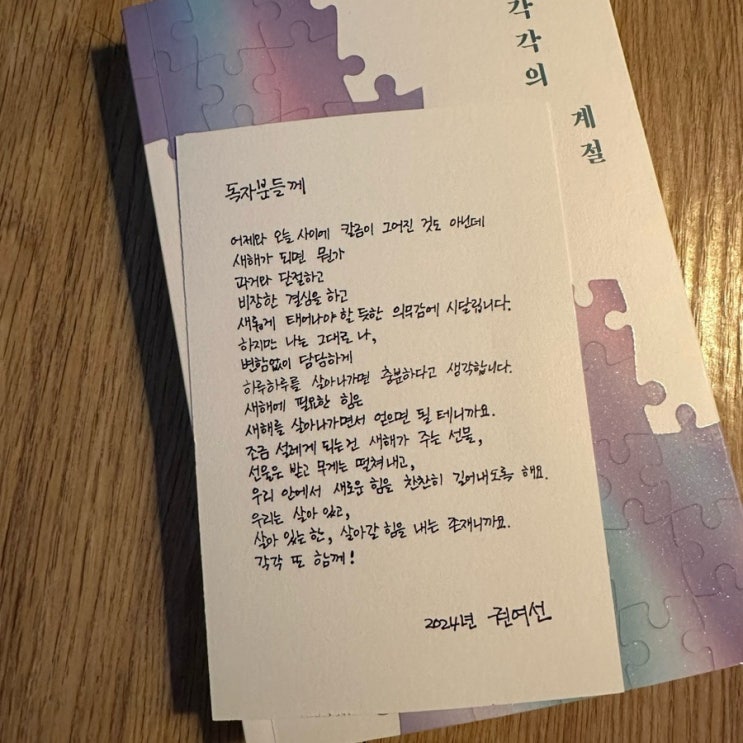 각각의 계절
독자분들께
어제와 오늘 사이에 칼금이 그어진 것도 아닌데
새해가 되면 뭔가
과거와 단절하고
비장한 결심을 하고
새롭게 태어나야 할 듯한 의무감에 시달립니다.
하지만 나는 그대로 나,
변함없이 담담하게
하루하루를 살아나가면 충분하다고 생각합니다.
새해에 필요한 힘은
새해를 살아나가면서 얻으면 될 테니까요.
조금 설레게 되는건 새해가 주는 선물,
선물은 받고 무게는 떨쳐내고,
우리 안에서 새로운 힘을 찬찬히 길어내도록 해요.
우리는 살아 있고,
살아 있는 한, 살아갈 힘을 내는 존재니까요.
각각 또 함께!
2024년 권여선